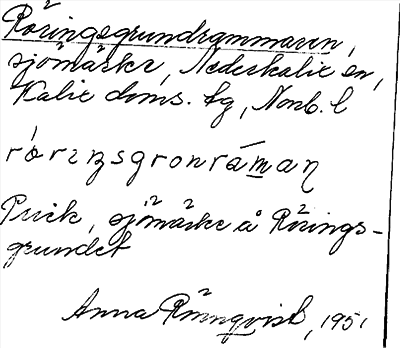 Röringsgrundrammaren,
sjömärke, Nederkalix sn,
Kalix doms. tg, Norrb. l
Prick, sjömärke å Rörings-
grundet
Anna Rönnqvist, 1951